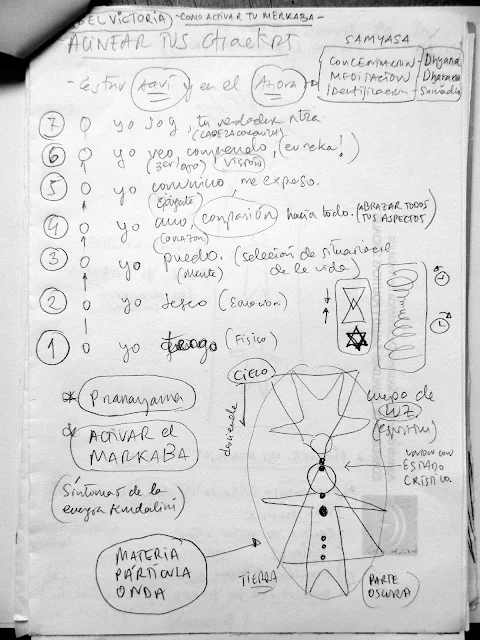 BEL VICTORIA) - COMO ACTIVAR TU MERKABA -
ALINEAR TUS Chackras
SAMYASA
- Estar AQUÍ y en el AHORA
CONCENTRACION - Dhyana
MEDITACION - Dharana
identificacion - Samadhi
7 yo soy, tu verdadera
(CABEZA CORONILLA)
6 yo veo, comprendo, (eureka!)
(3er OJO) (VISION)
5 yo comunico, me expreso.
(Garganta)
4 yo amo, compasión hacia todo. (ABRAZAR TODOS
(CORAZON) TUS ASPECTOS)
3 yo puedo. (solución de situaciones
(Mente) de la vida)
2 yo deseo (Emoción)
1 yo tengo (Físico)
* Pranayama
* ACTIVAR el
MARKABA
(Síntomas de la
energia Kundalini)
MATERIA
PARTICULA
ONDA
CIELO
desciende
cuerpo de
LUZ
(espiritu)
union con
ESTADO
CRISTICO.
TIERRA
PARTE
OSCURA